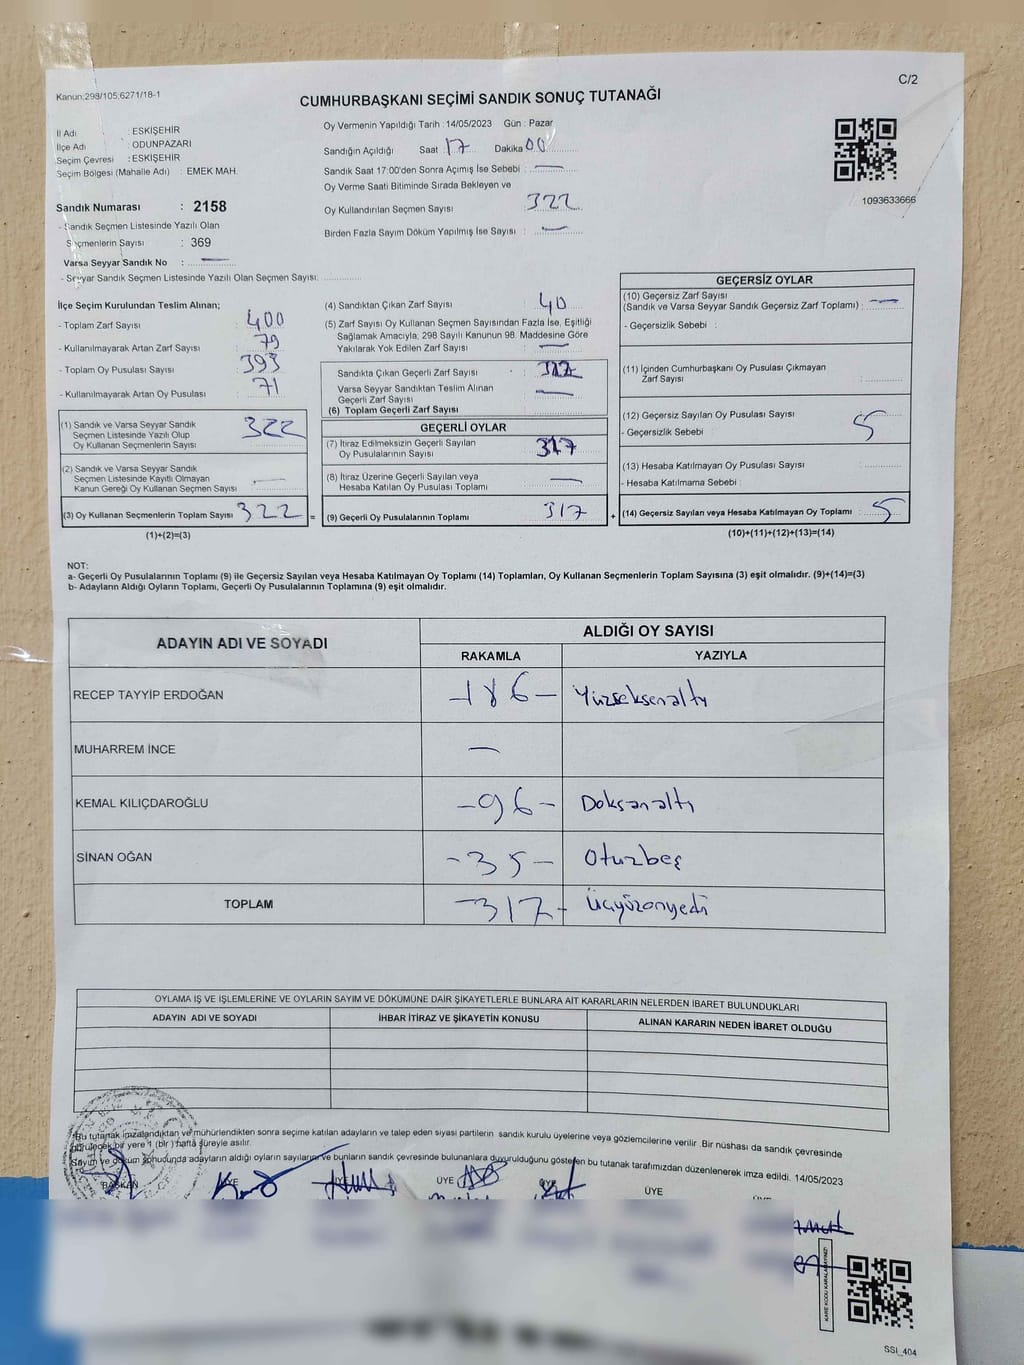 C/2
Kanun:298/105;6271/18-1
CUMHURBAŞKANI SEÇİMİ SANDIK SONUÇ TUTANAĞI
İl Adı : ESKİŞEHİR
İlçe Adı : ODUNPAZARI
Seçim Çevresi : ESKİŞEHİR
Seçim Bölgesi (Mahalle Adı) : EMEK MAH.
Sandık Numarası : 2158
- Sandık Seçmen Listesinde Yazılı Olan
Seçmenlerin Sayısı : 369
Varsa Seyyar Sandık No : —
- Seyyar Sandık Seçmen Listesinde Yazılı Olan Seçmen Sayısı:
Oy Vermenin Yapıldığı Tarih : 14/05/2023 Gün : Pazar
Sandığın Açıldığı Saat 17 Dakika 00
Sandık Saat 17:00'den Sonra Açımış İse Sebebi : —
Oy Verme Saati Bitiminde Sırada Bekleyen ve
Oy Kullandırılan Seçmen Sayısı : 322
Birden Fazla Sayım Döküm Yapılmış İse Sayısı : —
1093633666
İlçe Seçim Kurulundan Teslim Alınan;
- Toplam Zarf Sayısı : 400
- Kullanılmayarak Artan Zarf Sayısı : 79
- Toplam Oy Pusulası Sayısı : 393
- Kullanılmayarak Artan Oy Pusulası : 71
(1) Sandık ve Varsa Seyyar Sandık
Seçmen Listesinde Yazılı Olup
Oy Kullanan Seçmenlerin Sayısı : 322
(2) Sandık ve Varsa Seyyar Sandık
Seçmen Listesinde Kayıtlı Olmayan
Kanun Gereği Oy Kullanan Seçmen Sayısı : —
(3) Oy Kullanan Seçmenlerin Toplam Sayısı : 322 =
(1)+(2)=(3)
(4) Sandıktan Çıkan Zarf Sayısı : 40
(5) Zarf Sayısı Oy Kullanan Seçmen Sayısından Fazla İse, Eşitliği
Sağlamak Amacıyla, 298 Sayılı Kanunun 98. Maddesine Göre
Yakılarak Yok Edilen Zarf Sayısı : —
Sandıkta Çıkan Geçerli Zarf Sayısı :
Varsa Seyyar Sandıktan Teslim Alınan
Geçerli Zarf Sayısı : —
(6) Toplam Geçerli Zarf Sayısı
GEÇERLİ OYLAR
(7) İtiraz Edilmeksizin Geçerli Sayılan
Oy Pusulalarının Sayısı : 317
(8) İtiraz Üzerine Geçerli Sayılan veya
Hesaba Katılan Oy Pusulası Toplamı : —
(9) Geçerli Oy Pusulalarının Toplamı : 317 +
GEÇERSİZ OYLAR
(10) Geçersiz Zarf Sayısı
(Sandık ve Varsa Seyyar Sandık Geçersiz Zarf Toplamı) : —
- Geçersizlik Sebebi :
(11) İçinden Cumhurbaşkanı Oy Pusulası Çıkmayan
Zarf Sayısı :
(12) Geçersiz Sayılan Oy Pusulası Sayısı : 5
- Geçersizlik Sebebi :
(13) Hesaba Katılmayan Oy Pusulası Sayısı :
- Hesaba Katılmama Sebebi :
(14) Geçersiz Sayılan veya Hesaba Katılmayan Oy Toplamı : 5
(10)+(11)+(12)+(13)=(14)
NOT:
a- Geçerli Oy Pusulalarının Toplamı (9) ile Geçersiz Sayılan veya Hesaba Katılmayan Oy Toplamı (14) Toplamları, Oy Kullanan Seçmenlerin Toplam Sayısına (3) eşit olmalıdır. (9)+(14)=(3)
b- Adayların Aldığı Oyların Toplamı, Geçerli Oy Pusulalarının Toplamına (9) eşit olmalıdır.
ADAYIN ADI VE SOYADI
ALDIĞI OY SAYISI
RAKAMLA YAZIYLA
RECEP TAYYİP ERDOĞAN -186- Yüzseksenaltı
MUHARREM İNCE —
KEMAL KILIÇDAROĞLU -96- Doksanaltı
SİNAN OĞAN -35- Otuzbeş
TOPLAM -317- Üçyüzonyedi
OYLAMA İŞ VE İŞLEMLERİNE VE OYLARIN SAYIM VE DÖKÜMÜNE DAİR ŞİKAYETLERLE BUNLARA AİT KARARLARIN NELERDEN İBARET BULUNDUKLARI
ADAYIN ADI VE SOYADI İHBAR İTİRAZ VE ŞİKAYETİN KONUSU ALINAN KARARIN NEDEN İBARET OLDUĞU
*Bu tutanak imzalandıktan ve mühürlendikten sonra seçime katılan adayların ve talep eden siyasi partilerin sandık kurulu üyelerine veya gözlemcilerine verilir. Bir nüshası da sandık çevresinde
görülecek bir yere 1 (bir) hafta süreyle asılır.
Sayım ve döküm sonucunda adayların aldığı oyların sayılarını ve bunların sandık çevresinde bulunanlara duyurulduğunu gösteren bu tutanak tarafımızdan düzenlenerek imza edildi. 14/05/2023
BAŞKAN ÜYE ÜYE ÜYE ÜYE ÜYE
SSİ_404